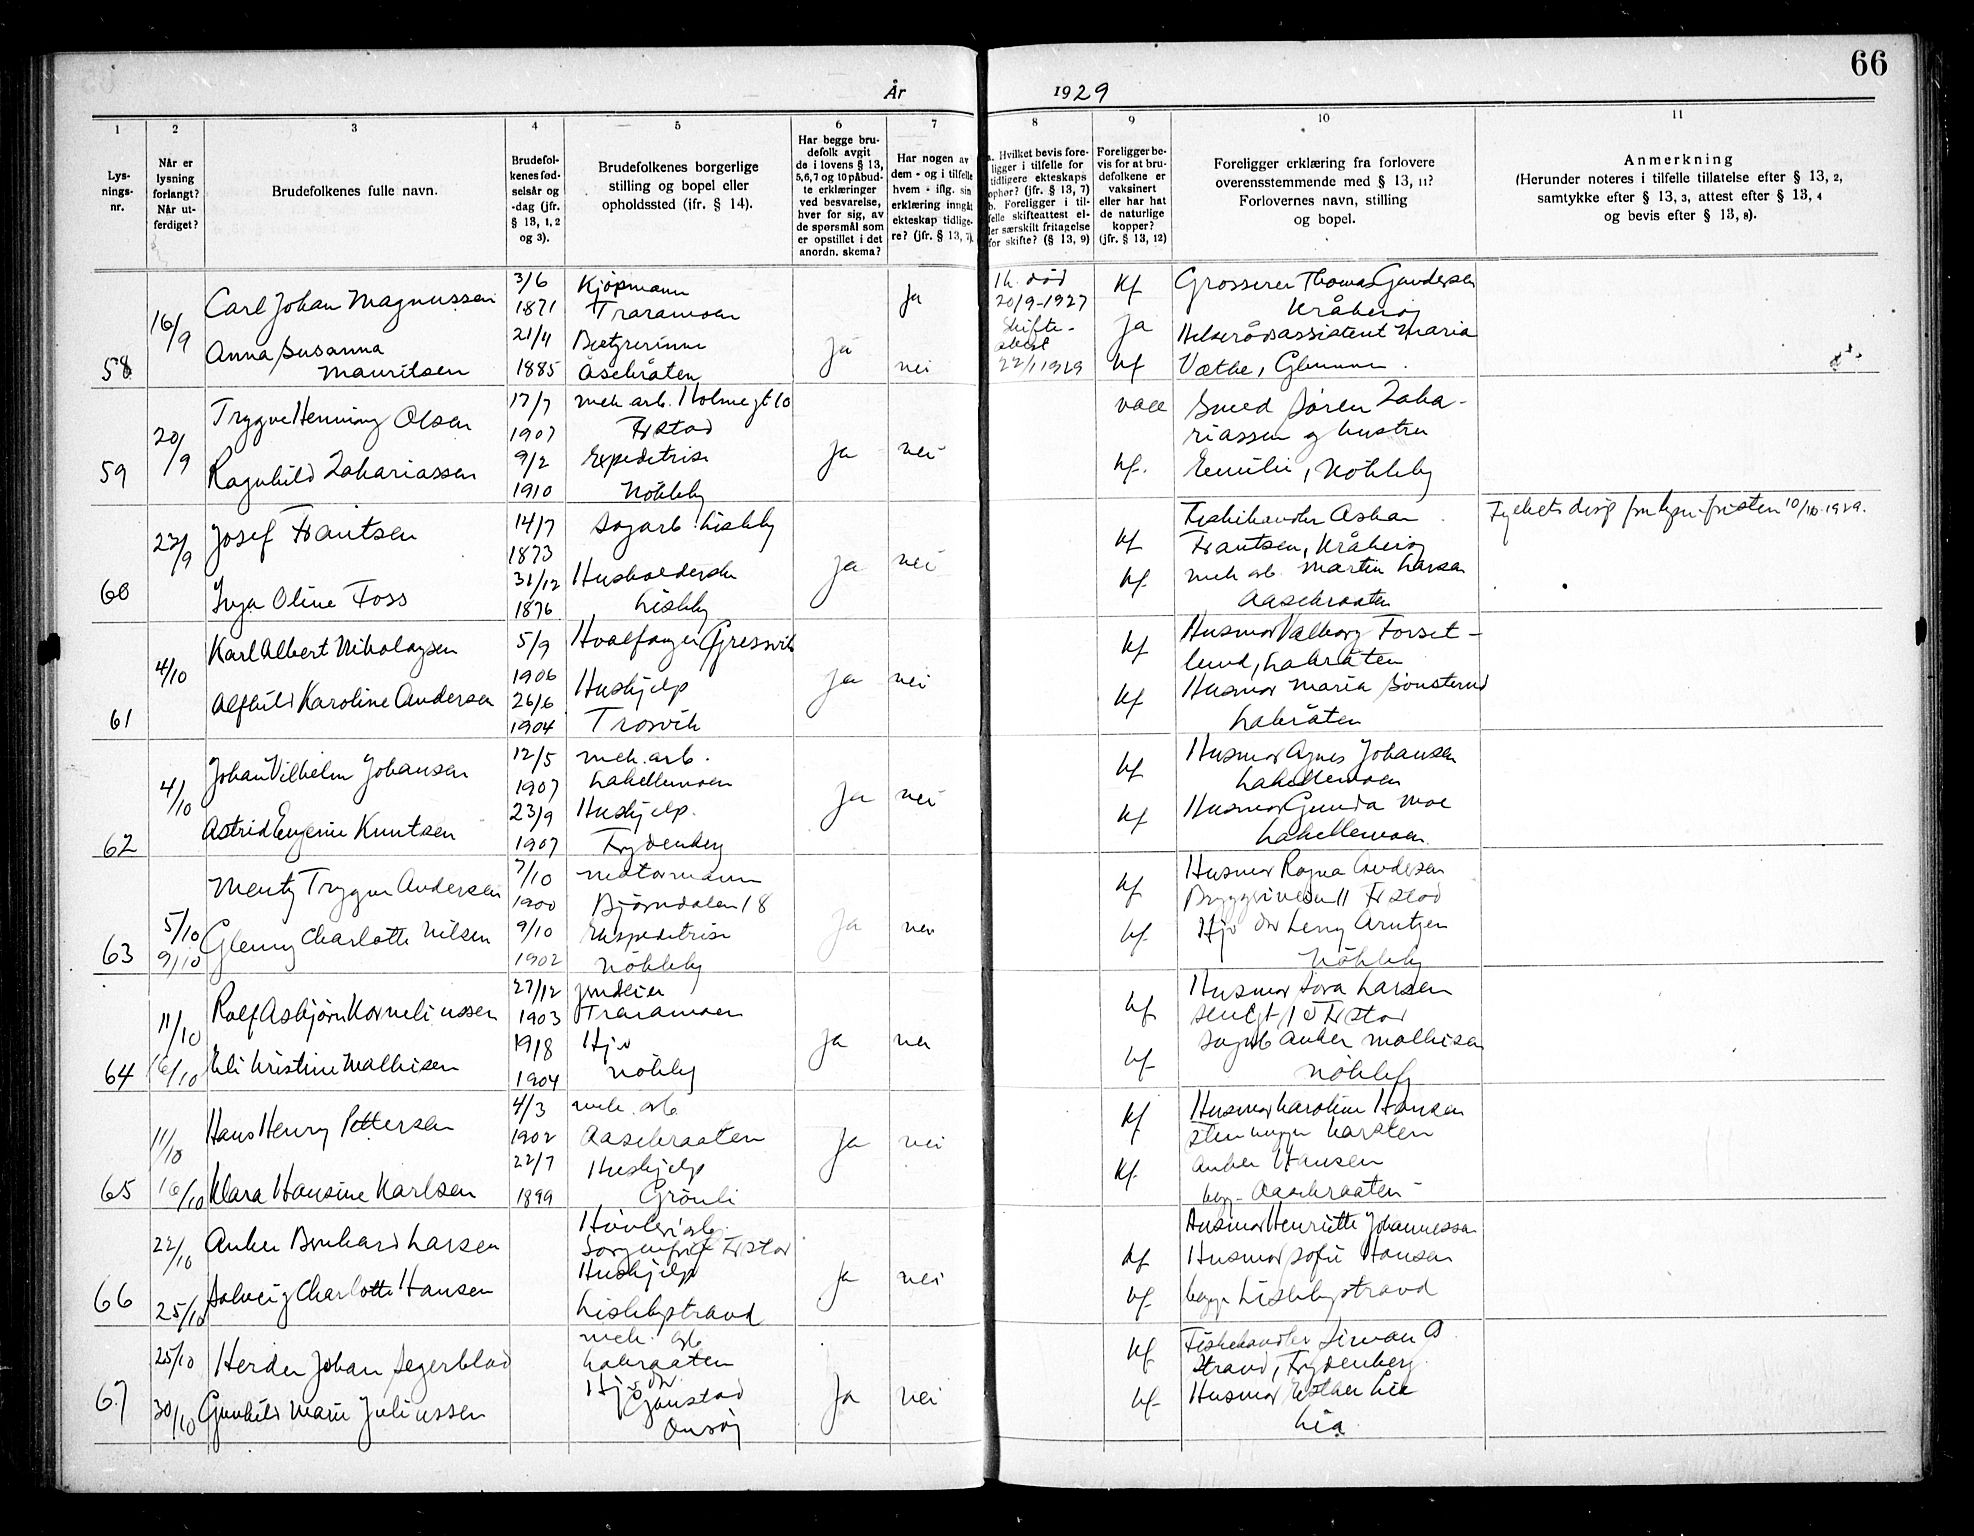 66
År 1929
1 2 3 4 5 6 7 8 9 10 11
Lys-
nings-
nr.
Når er
lysning
forlangt?
Når ut-
ferdiget?
Brudefolkenes fulle navn.
Brudefol-
kenes fød-
selsår og
-dag (jfr.
§ 13, 1, 2
og 3).
Brudefolkenes borgerlige
stilling og bopel eller
opholdssted (ifr. § 14).
Har begge bru-
defolk avgit
de i lovens § 13,
5,6,7 og 10 påbud-
te erklæringer
ved besvarelse,
hver for sig, av
de spørsmål som
er opstillet i det
anordn. skema?
Har nogen av
dem - og i tilfelle
hvem - iflg. sin
erklæring inngått
ekteskap tidlige-
re? (jfr. § 13, 7).
a. Hvilket bevis fore-
ligger i tilfelle for
tidligere ekteskaps
ophør? (jfr. § 13, 7)
b. Foreligger i til-
felle skifteattest el-
ler særskilt fritagelse
for skifte? (§ 13, 9)
Foreligger be-
vis for at bru-
defolkene er
vaksinert
eller har hat
de naturlige
kopper?
(jfr. § 13, 12)
Foreligger erklæring fra forlovere
overensstemmende med § 13, 11?
Forlovernes navn, stilling
og bopel.
Anmerkning
(Herunder noteres i tilfelle tillatelse efter § 13, 2,
samtykke efter § 13, 3, attest efter § 13, 4
og bevis efter § 13, 8).
58 16/9 Carl Johan Magnussen 3/6 1871 Kjøpmann Traramoen Ja død 20/9-1927 Kf Grosserer Thomas Gundersen
Kråkerøy
Anna Susanna Mauritsen 21/11 1885 Bestyrerinne Åsebråten Ja nei Skifte-
attest 22/1 1929 Ja Kf Helserådsassistent Maria
Væthe, Glemmen.
59 20/9 Trygve Henning Olsen 17/7 1907 mek. arb. Holmegt 10 Frstad vacc Smed Søren Zaka-
riassen og hustru
Ragnhild Zakariassen 9/2 1910 Expeditrise Nökleby Ja nei kf. Emilie, Nökleby
60 23/9 Josef Frantsen 14/7 1873 Sagarb. Lisleby kf Fiskehandler Oskar
Frantsen, Kråkerøy
Inga Oline Foss 31/12 1876 Husholderske Lisleby Ja nei kf. mek arb. Martin Larsen
Aasebraaten
61 4/10 Karl Albert Nikolaysen 5/9 1906 Hvalfanger Gressvik kf Husmor Valborg Forset-
lund, Labråten
Alfhild Karoline Andersen 26/6 1904 Hushjelp Trosvik Ja nei kf Husmor Maria Sönsterud
Labråten
62 4/10 Johan Vilhelm Johansen 12/5 1907 mek. arb. Lahellemoen kf Husmor Agnes Johansen
Lahellemoen
Astrid Eugenie Knutsen 23/9 1907 Hushjelp. Frydenberg Ja nei kf Husmor Gunda Moe
Lahellemoen.
63 5/10 9/10 Mentz Trygve Andersen 7/10 1900 motormann Bjørndalen 18 kf Husmor Ragna Andersen
Bryggeriveien 11 Frstad
Glenny Charlotte Nilsen 9/10 1902 Ekspeditrise Nökleby Ja nei kf. Hjv dtr Lenny Arntzen
Nökleby
64 11/10 16/10 Rolf Asbjørn Korneliussen 27/12 1903 Traramoen kf Husmor Tora Larsen
Frstad
Eli Kristine Mathisen 19/8 1904 Hjv Nökleby Ja nei kf- Anker Mathisen
Nökleby
65 11/10 16/10 Hans Henry Pettersen 4/3 1902 mek. arb Aasebraaten kf Husmor Karoline Hansen
Karsten
Klara Hansine Karlsen 22/7 1899 Hushjelp Grönli Ja nei kf. Anker Hansen
begge Aasebraaten-
66 22/10 25/10 Anker Bernhard Larsen Høvleriarb. Sorgenfri Frstad kf Husmor Henriette Johannessen
Husmor Sofie Hansen
Solveig Charlotte Hansen Hushjelp Lislebystrand Ja nei kf- begge Lislebystrand
67 25/10 30/10 Herder Johan Segerblad mek. arb Labraaten kf Fiskehandler Simon A
Strand, Frydenberg.
Gunhild Marie Juliussen Hjv dtr Gaustad Onsøy Ja nei kf- Husmor Esther Lie
Lia